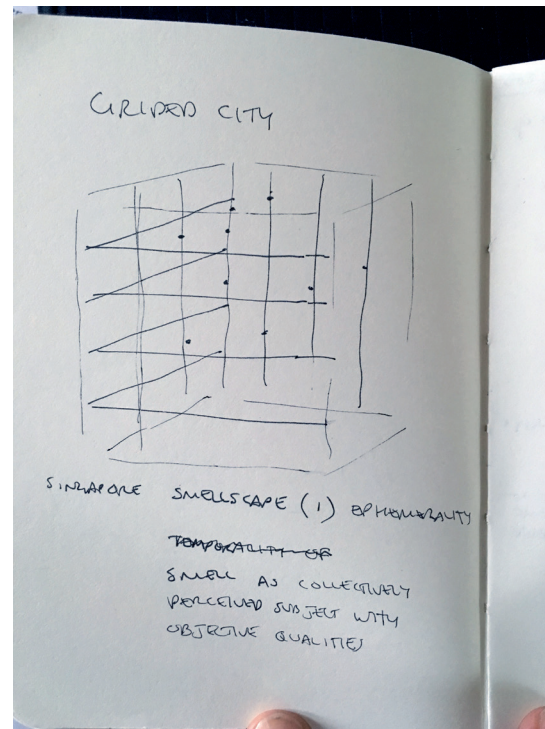 GRIDED CITY
SINGAPORE SMELLSCAPE (1) EPHEMERALITY
TEMPORALITY OF
SMELL AS COLLECTIVELY
PERCEIVED SUBJECT WITH
OBJECTIVE QUALITIES